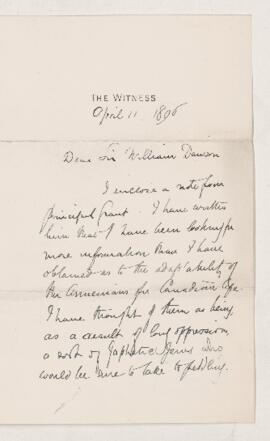 THE WITNESS
April 11 1896
Dear Sir William Dawson
I enclose a note from
Principal Grant. I have written
him that I have been looking for
more information than I have
obtained as to the adaptability of
the Armenians for Canadian life.
I have thought of them as being
as a result of long oppression,
a sort of Japhetic Jews who
would be sure to take to peddling.